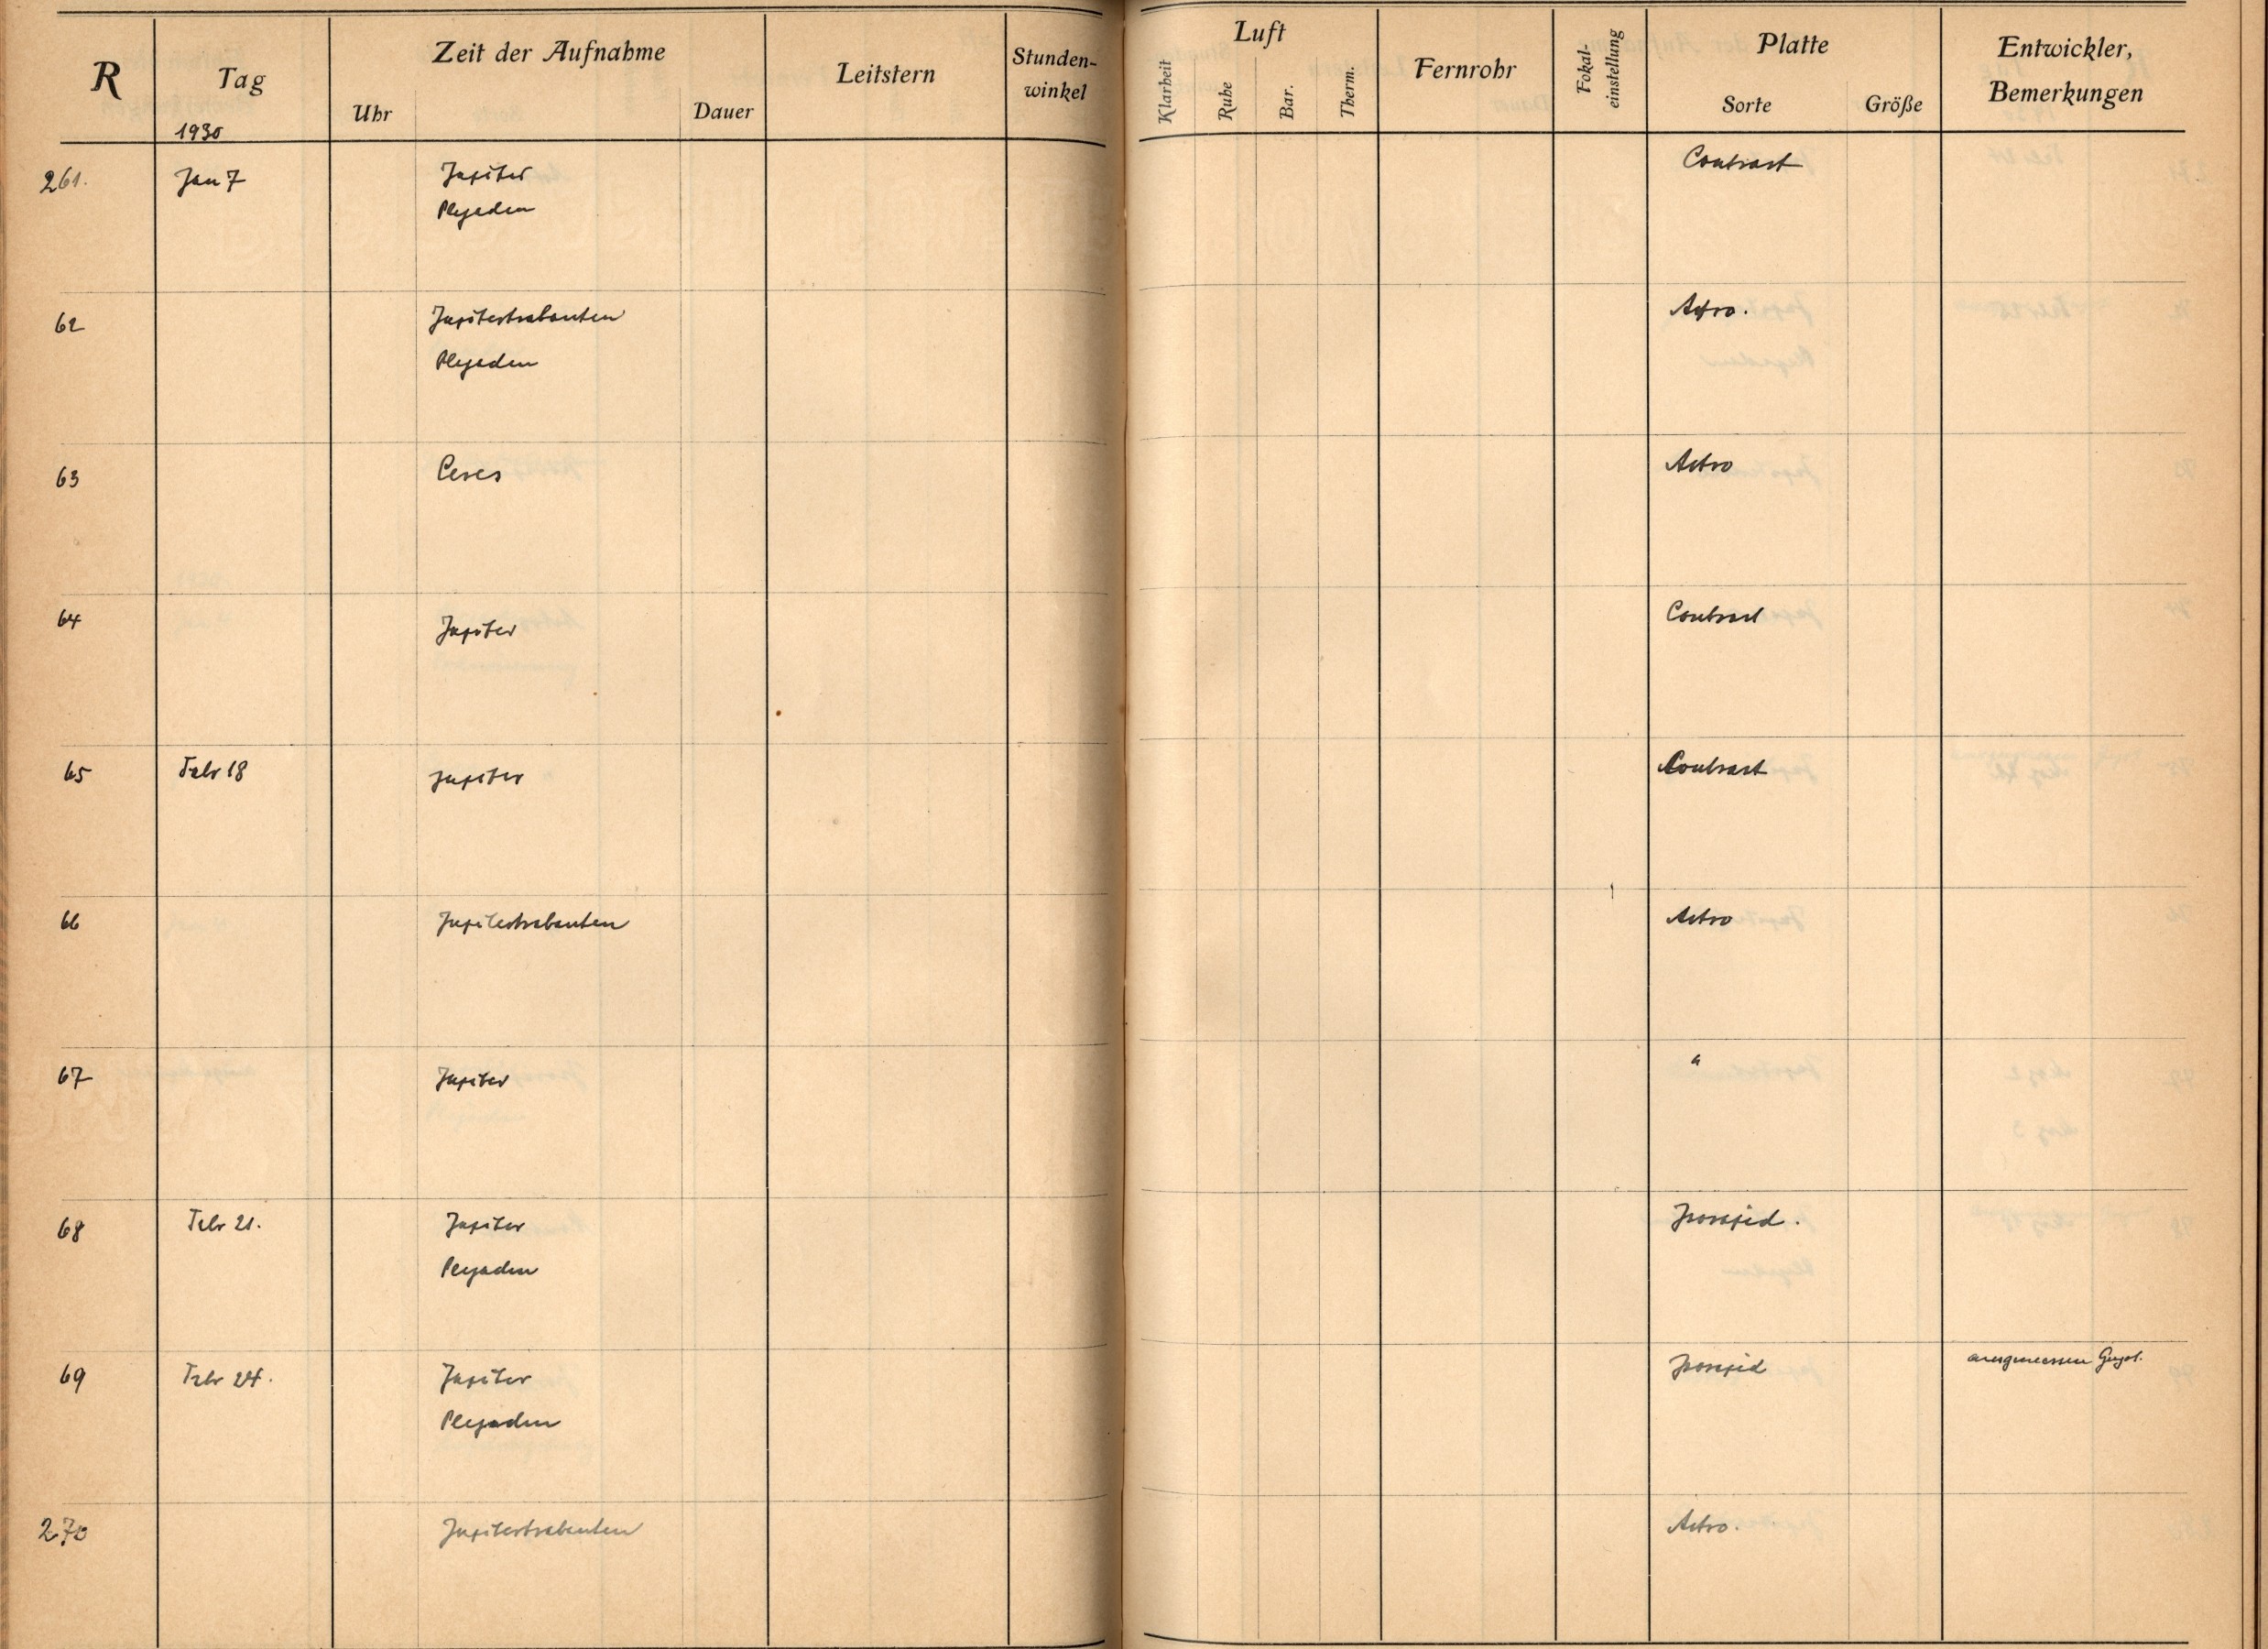 R
Tag
1930
Zeit der Aufnahme
Uhr
Dauer
Leitstern
Stunden-
winkel
Luft
Klarheit
Ruhe
Bar.
Therm.
Fernrohr
Fokal-
einstellung
Platte
Sorte
Größe
Entwickler,
Bemerkungen
261. Jan 7 Jupiter Contrast
Plejaden
62 Jupitertrabanten Astro.
Plejaden
63 Ceres Astro
64 Jupiter Contrast
65 Febr 18 Jupiter Contrast
66 Jupitertrabanten Astro
67 Jupiter "
68 Febr 21. Jupiter Isorapid.
Plejaden
69 Febr 24. Jupiter Isorapid ausgemessen
Plejaden
270 Jupitertrabanten Astro.